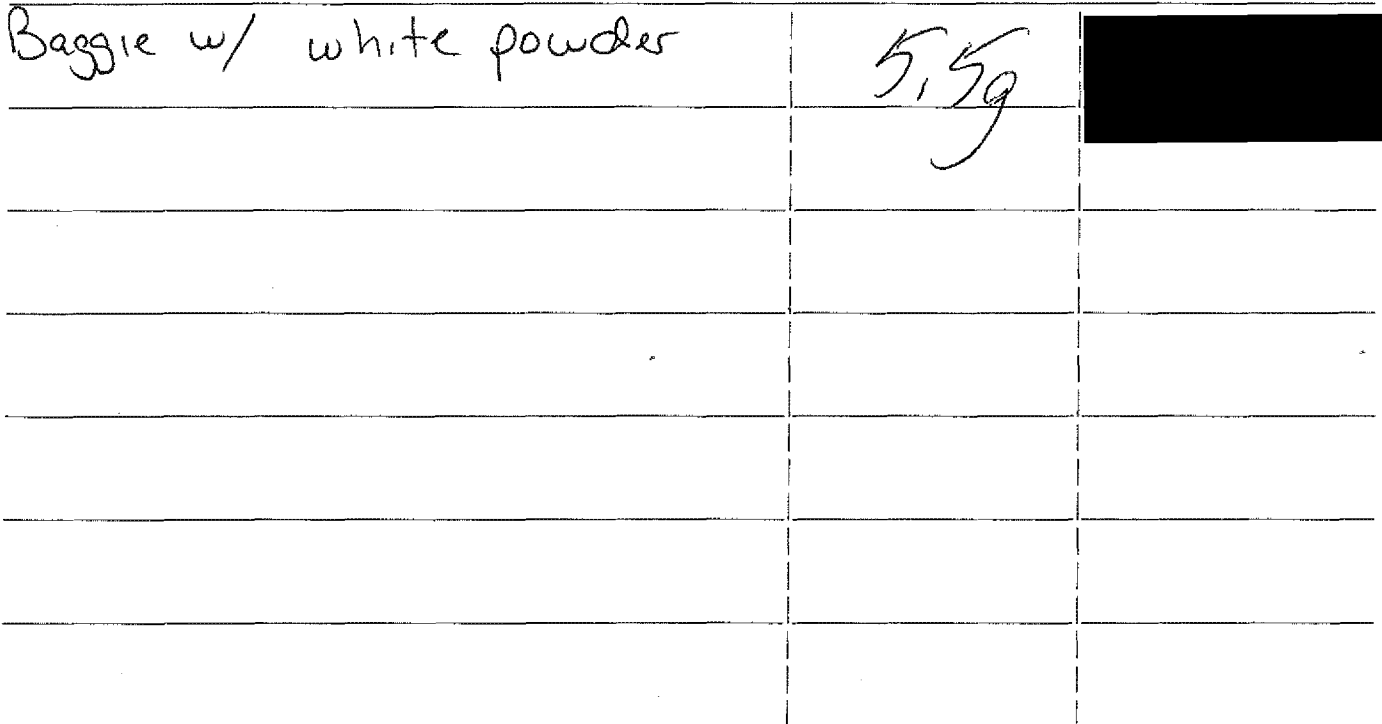 Baggie w/ white powder 5.5g